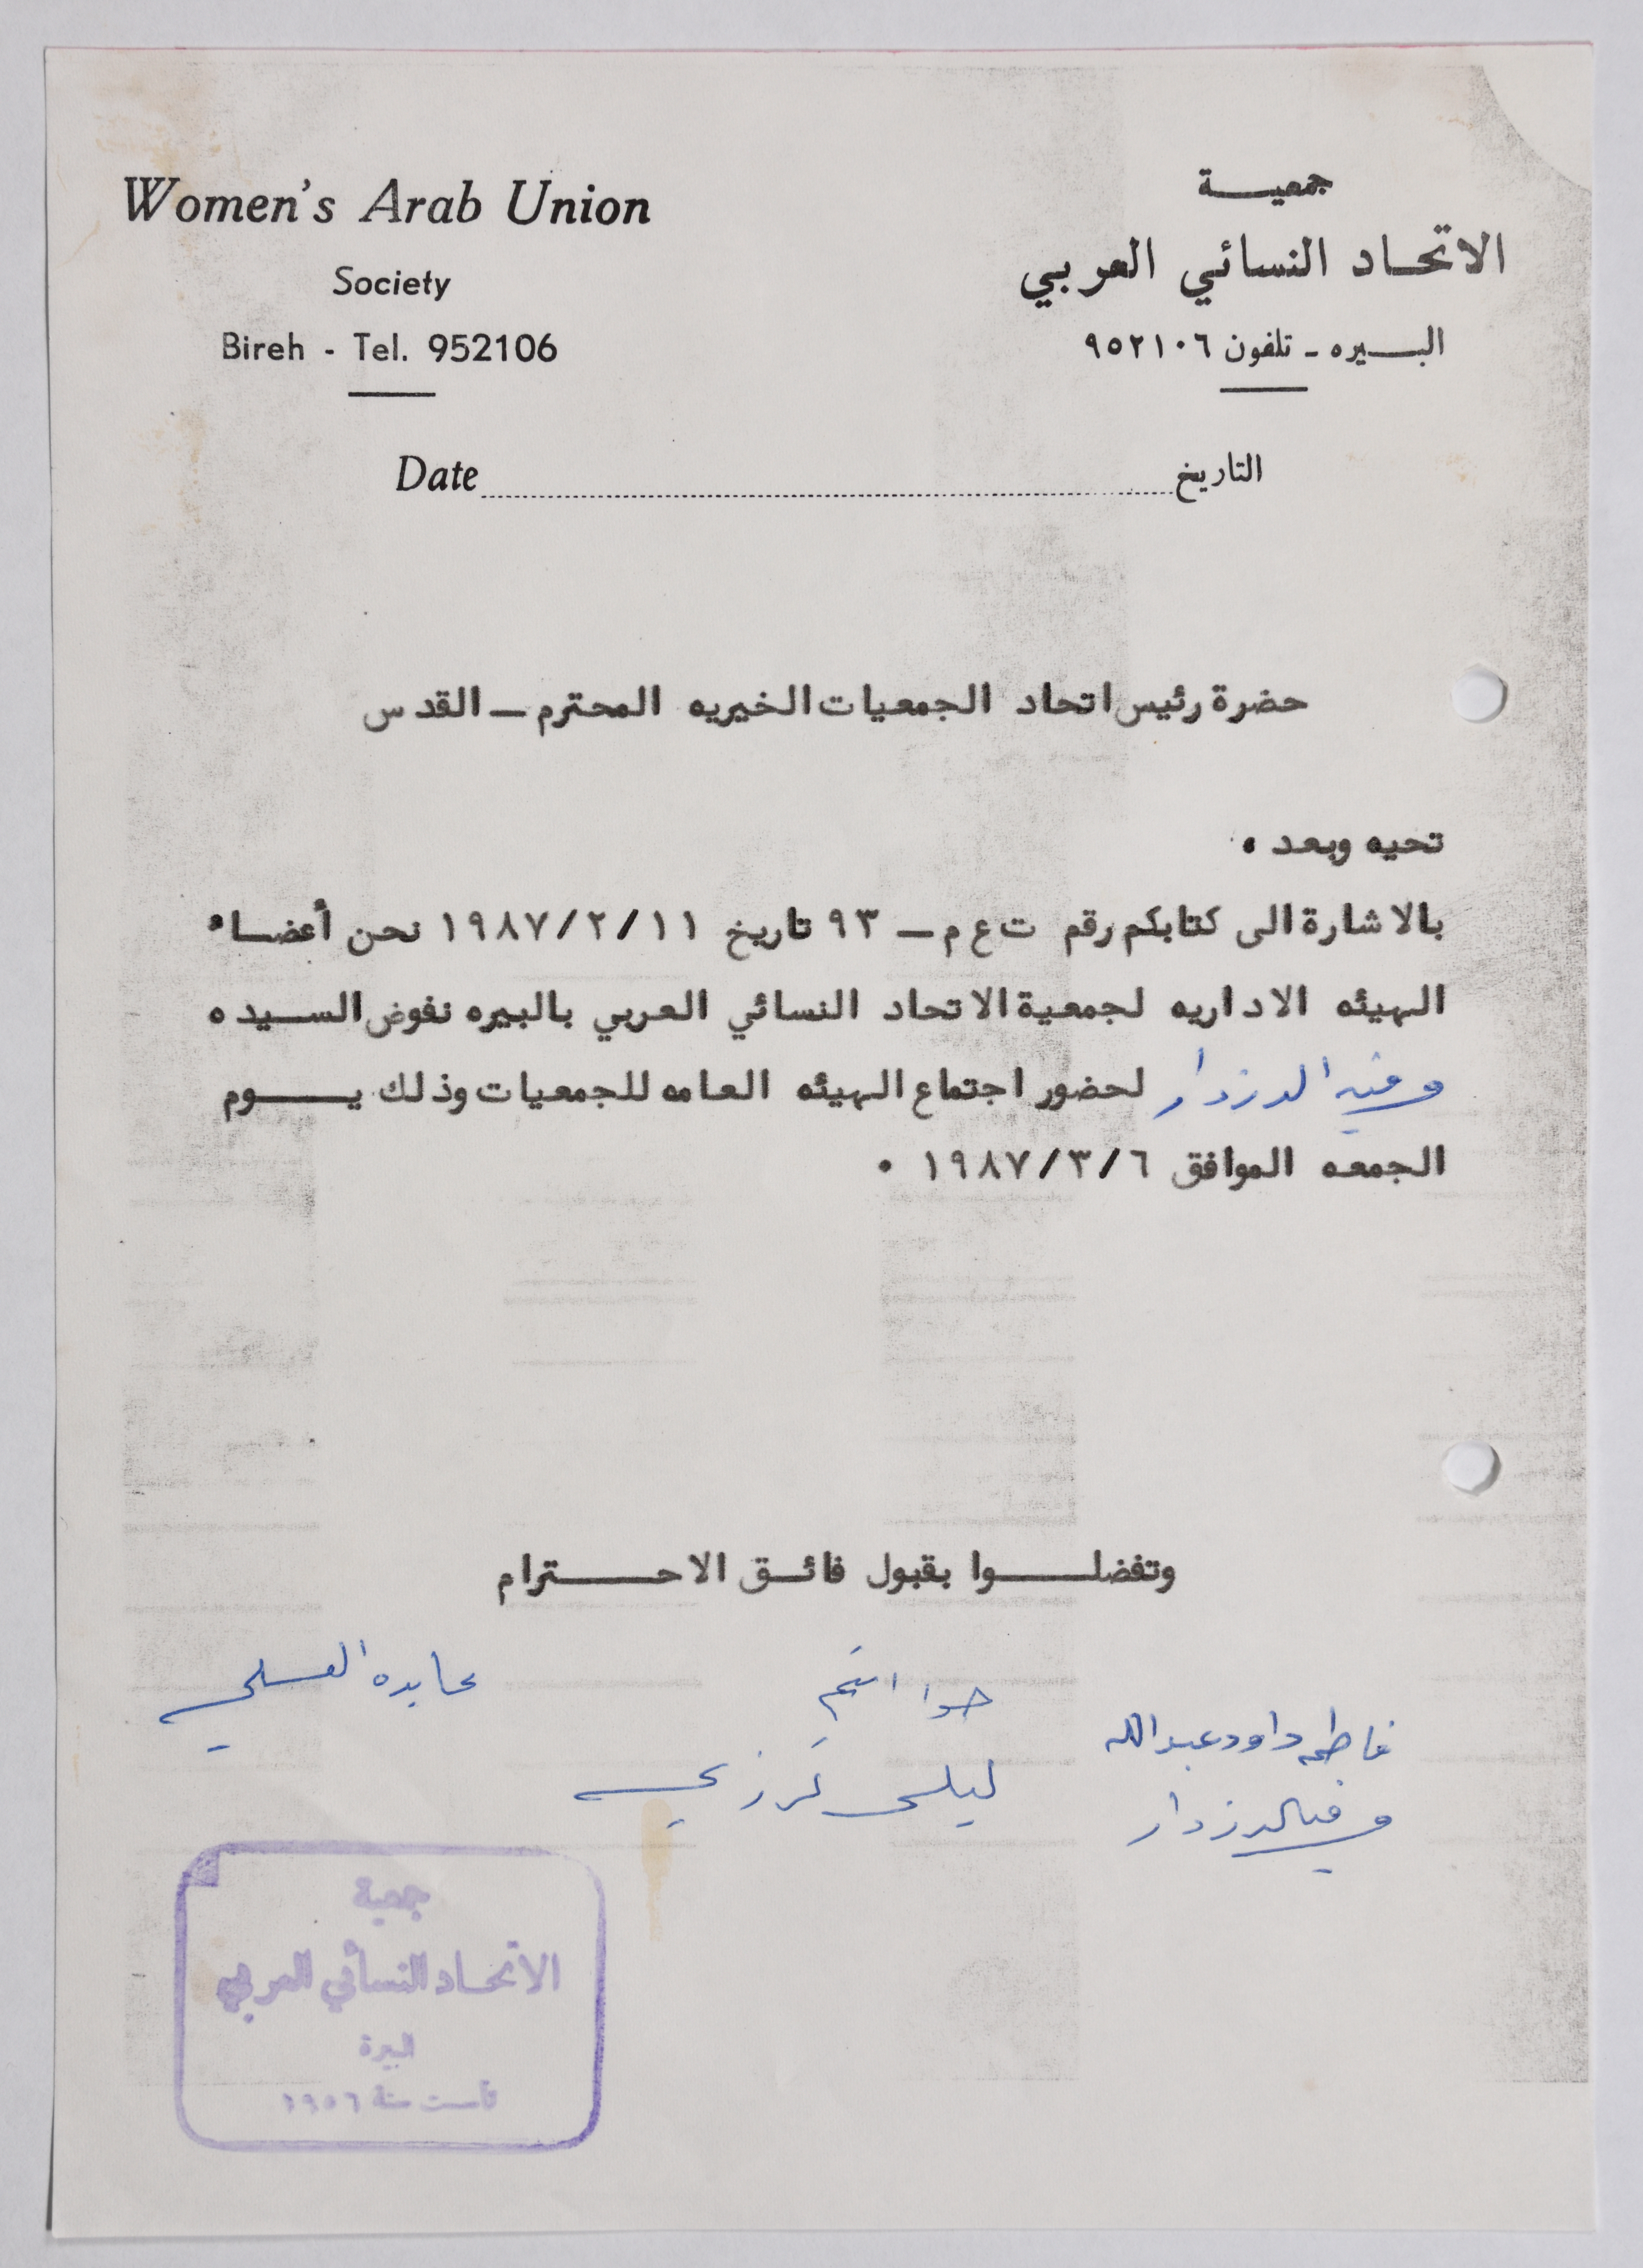 Women's Arab Union
Society
Bireh - Tel. 952106
جمعيـــة
الاتحـاد النسائي العربي
البـــيره ـ تلفون ٩٥٢١٠٦
Date التاريخ
حضرة رئيس اتحاد الجمعيات الخيريه المحترم ــ القدس
تحيه وبعد ٠
بالاشارة الى كتابكم رقم ت ع م ــ ٩٣ تاريخ ١٩٨٧/٢/١١ نحن أعضـاء
الهيئه الاداريه لجمعية الاتحاد النسائي العربي بالبيره نفوض الســيده
لحضور اجتماع الهيئه العامه للجمعيات وذلك يـــــوم
الجمعه الموافق ١٩٨٧/٣/٦ ٠
وتفضلـــــوا بقبول فائــق الاحـــــترام
عابده
فاطمه داود عبدالله
ليلى
جمعية
الاتحـاد النسائي العربي
البيرة
تأسست سنة ١٩٥٦